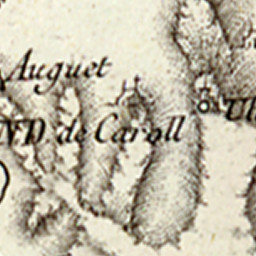 Auguet
ND. de Caroll